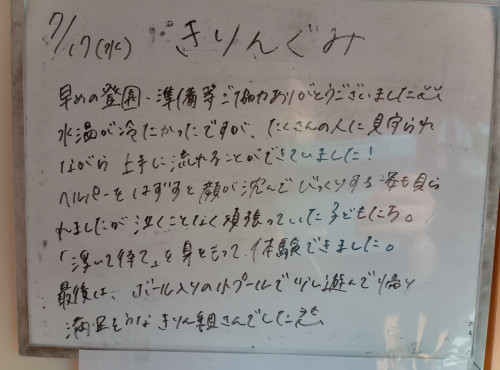 7/17(水) きりんぐみ
早めの登園・準備等ご協力ありがとうございました
水温が冷たかったですが、たくさんの人に見守られ
ながら上手に流れることができていました!
ヘルパーをはずすと顔が沈んでびっくりする姿も見ら
れましたが泣くことなく頑張っていた子どもたち。
「浮いて待て」を身をもって、体験できました。
最後は、ボール入りの小プールで少し遊んで帰り
満足そうなきりん組さんでした